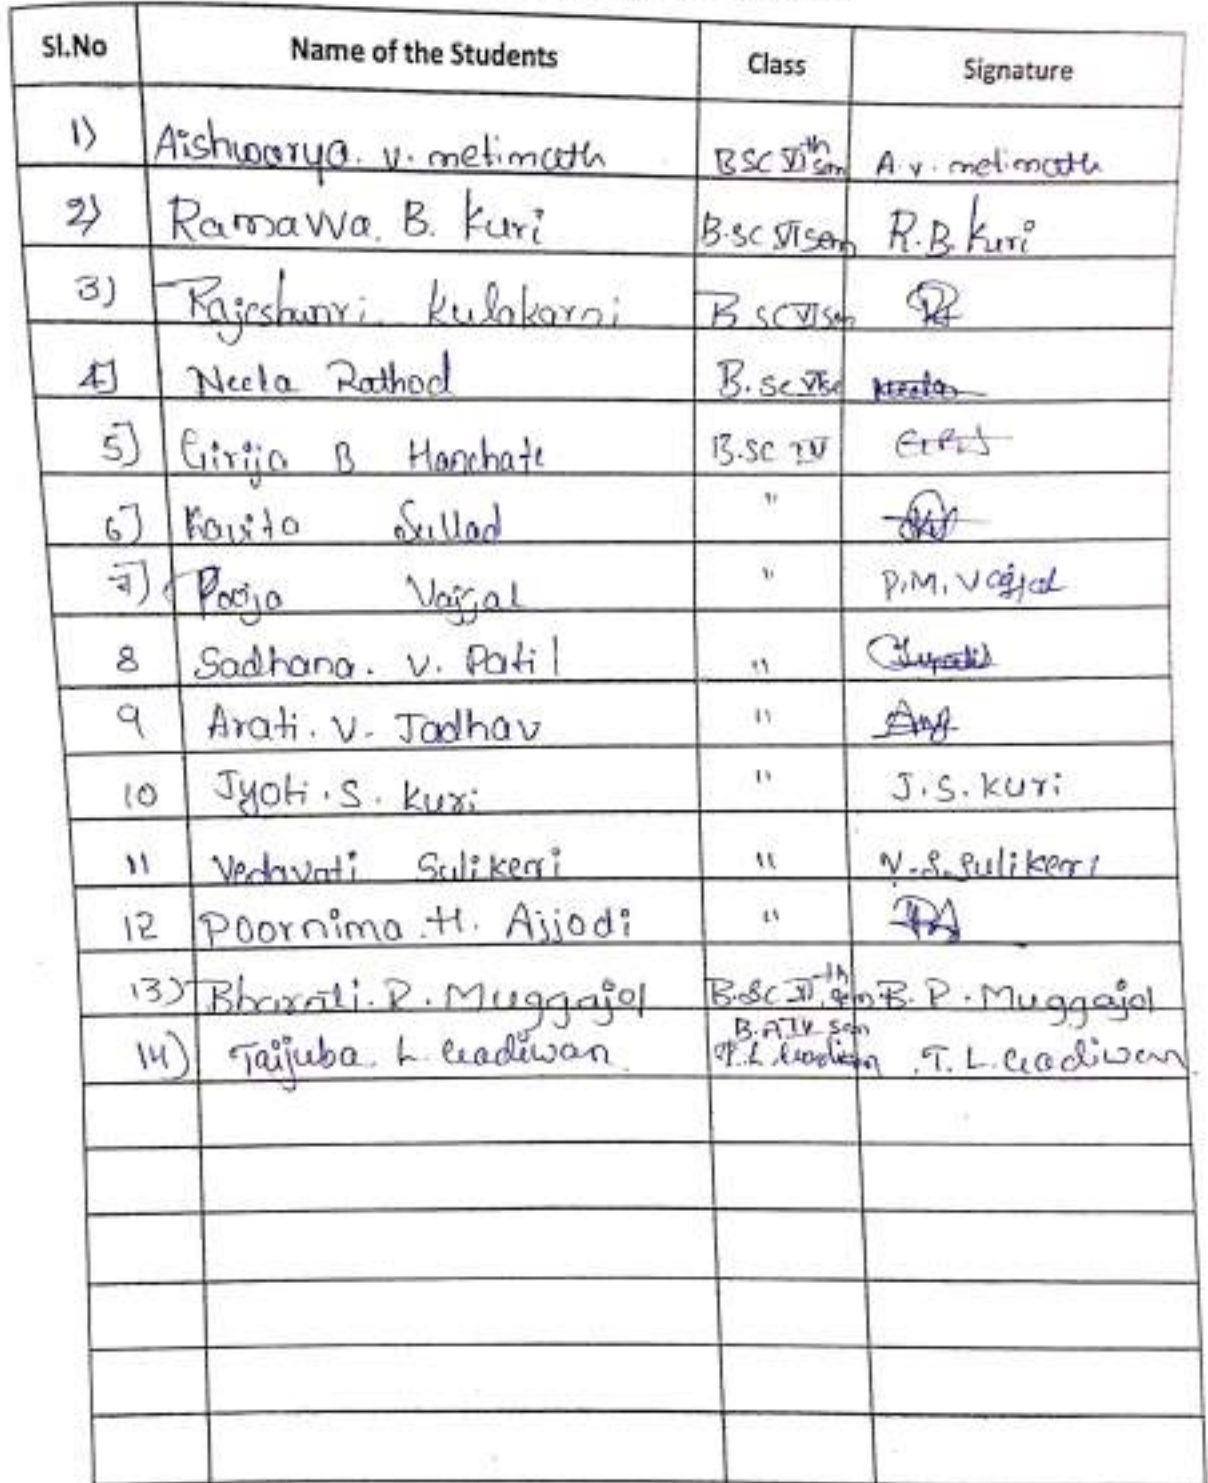 Sl.No Name of the Students Class Signature
1) Aishwarya. v. metimath BSC VIth sem A.v. metimath
2) Ramawwa. B. Kuri B.sc VI sem R.B. Kuri
3) Rajeshwri. Kulakarni B.sc VI sem
4] Neela Rathod B.sc VI se Neela
5] Girija B Hanchate B.sc IV
6] Kavita Sullad "
7] Pooja Vajjal " P.M. Vajjal
8 Sadhana. V. Patil "
9 Arati. V. Jadhav "
10 Jyoti. S. Kuri " J.S. Kuri
11 Vedavati Sulikeri " V.S. Sulikeri
12 Poornima .H. Ajjodi "
13) Bharati. R. Muggajol B.Sc VIth sem B. R. Muggajol
14) Taijuba. L. Gadiwan B.A IV sem T.L. Gadiwan T. L. Gadiwan